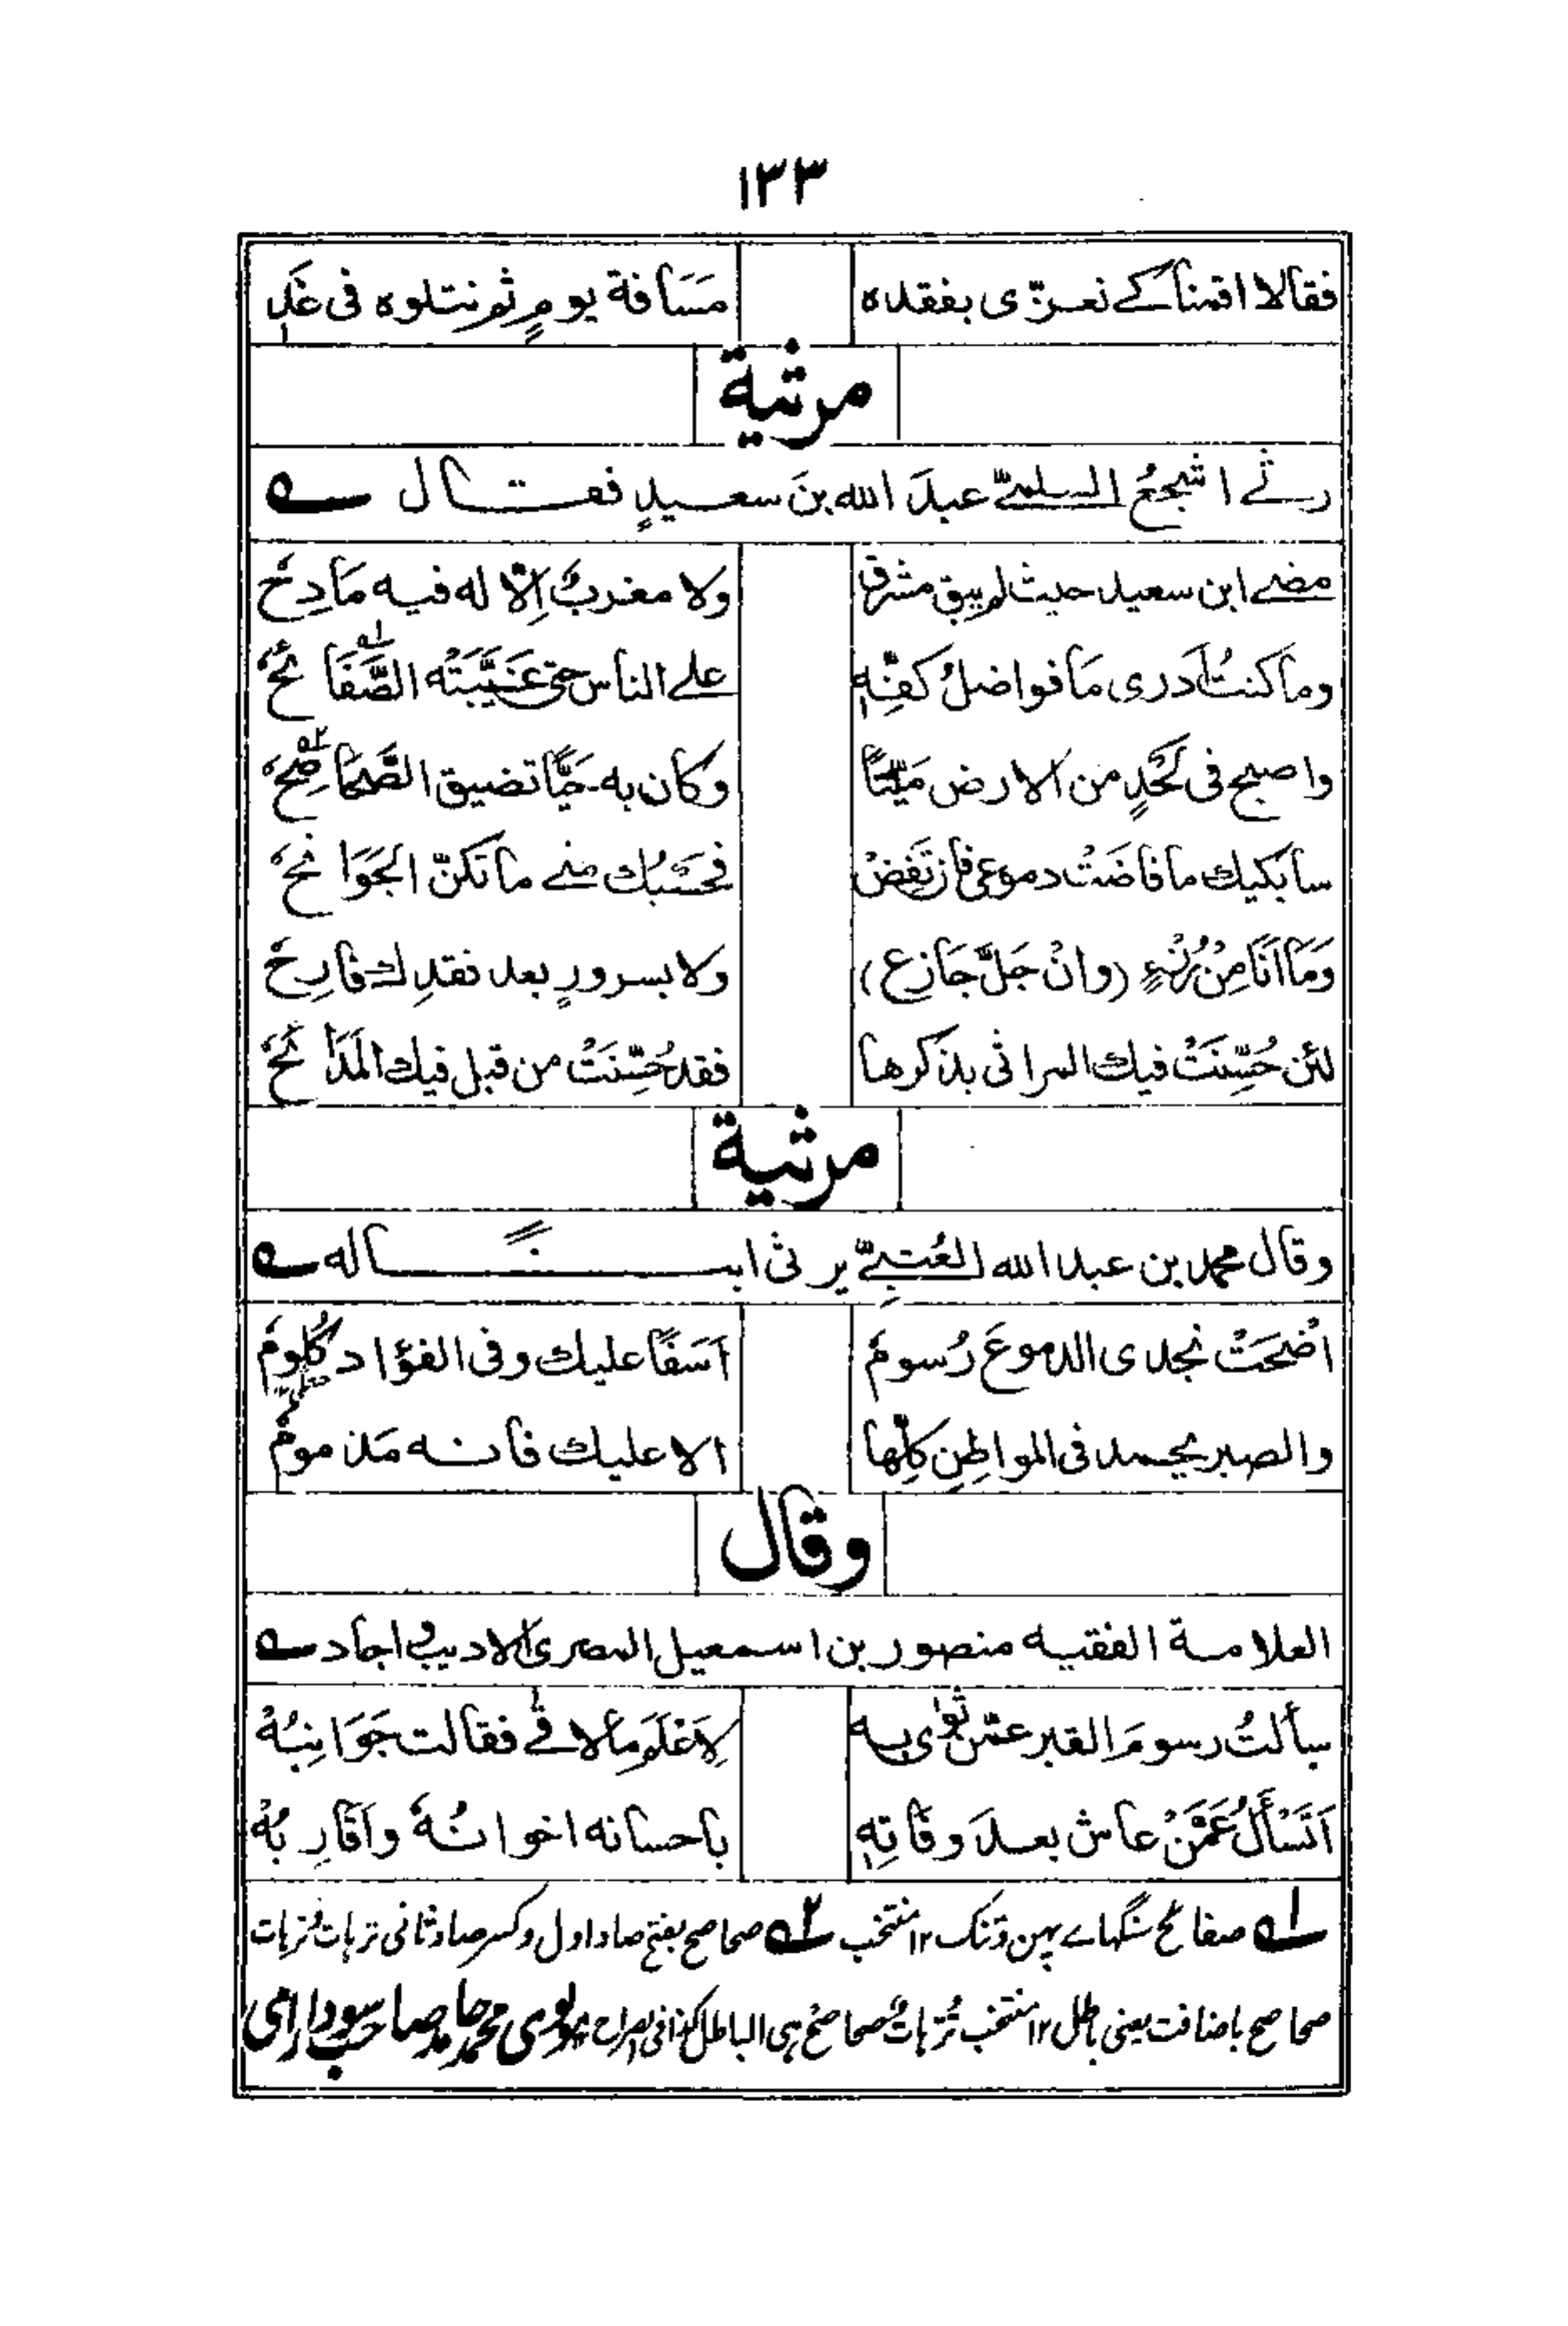 ١٣٣
فقالا اقمنا كے نعزّى بفقده مَسَافة يومٍ ثم نتلوه فى غَدِ
مرثية
رثے اشجعُ السلمےّ عبدَ الله بنَ سعيدٍ فقال ؎
مضے ابن سعيد حيث لم يبق مشرق ولا مغربٌ اِلّا له فيه مَادِحُ
وما كنتُ اَدرى مَا فواضلُ كفِّهٖ علے الناس حتى غَيَّبَتْه الصَّفَائحُ
واصبح فى لَحْدٍ من الارض مَيّتًا وكان به حَيًّا تضيق الصَّحَاصِحُ
سابكيك ما فاضَتْ دموعى فان تَغِضْ فحَسْبُك منے ما تكنّ الجَوَانحُ
وَمَا اَنَا مِنْ رُزْءٍ (وانْ جَلَّ جَازع) ولا بسرورٍ بعد فقدِك فارِحُ
لئن حُسّنَتْ فيك المراثى بذكرها فقد حُسِّنَتْ من قبل فيك المَدَائحُ
مرثية
وقال محمد بن عبد الله العُتبِےّ يرثى ابنًا له ؎
اَضْحَتْ بخدى الدموعَ رُسومُ اَسَفًا عليك وفى الفؤاد كُلومُ
والصبر يحمد فى المواطِنِ كلِّها الا عليك فانه مَذمومٌ
وقال
العلامة الفقيه منصور بن اسمعيل المصرى الاديب و اجاد ؎
سألتُ رسومَ القبر عمّن ثوٰى به لِاَعْلَم ما لاقےٰ فقالت جَوَانِبُهْ
اَتَسْأَلُ عَمَّنْ عاش بعدَ وفاتِهٖ باحسانه اخوانُهٗ واَقَارِبُهْ
؎١ صفائح سنگہاے پہن و تنک ١٢ منتخب ؎٢ صحاصح بفتح صاد اول و كسر صاد ثانى ترہات و ترہات
صحاصح باضافت يعنى باطل ١٢ منتخب تُرّہاتُ صحاصحُ ہى الباطل كذا فى الصراح ١٢ مولوى محمد حامد صاحب سودارامى